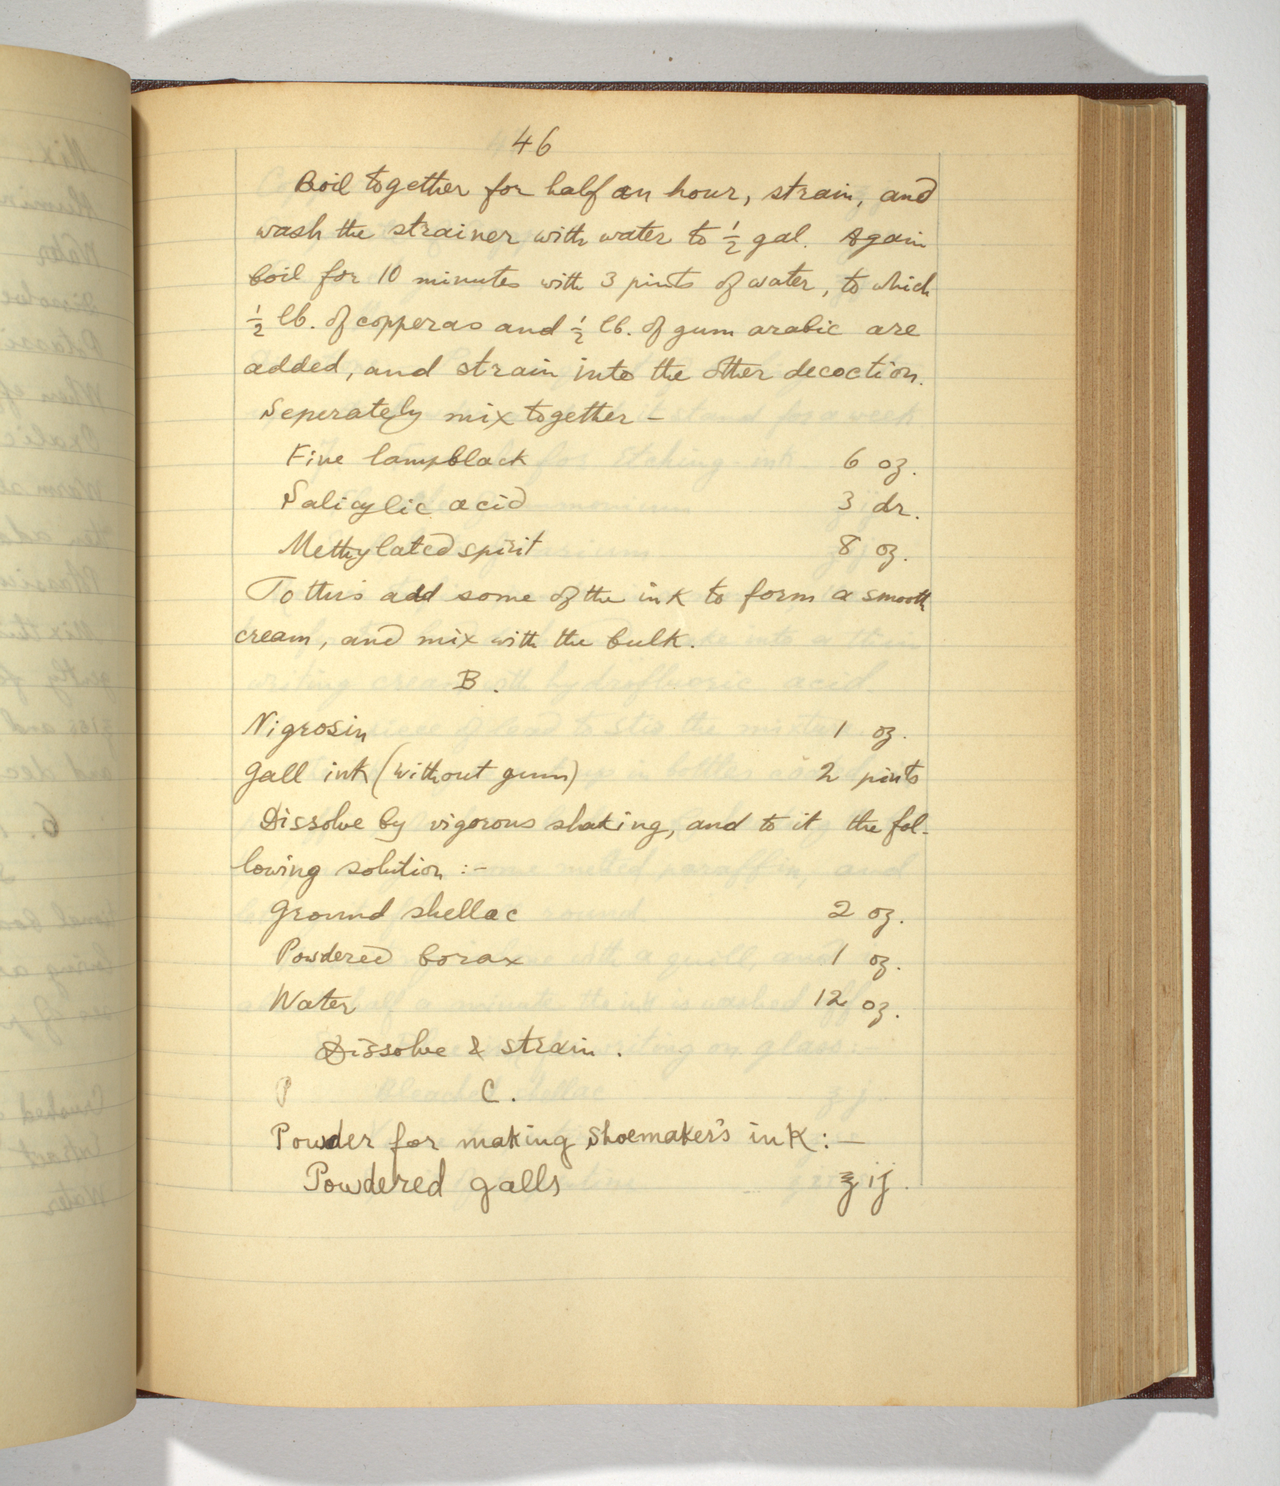 46
Boil together for half an hour, strain, and
wash the strainer with water to ½ gal. Again
boil for 10 minutes with 3 pints of water, to which
½ lb. of copperas and ½ lb. of gum arabic are
added, and strain into the other decoction.
Seperately mix together –
Fine lampblack 6 oz.
Salicylic acid 3 dr.
Methylated spirit 8 oz.
To this add some of the ink to form a smooth
cream, and mix with the bulk.
B.
Nigrosin 1 oz.
Gall ink (without gum) 2 pints
Dissolve by vigorous shaking, and to it the fol-
lowing solution :-
Ground shellac 2 oz.
Powdered borax 1 oz.
Water 12 oz.
Dissolve & strain.
P C.
Powder for making Shoemaker's ink : —
Powdered galls ℥ ij.